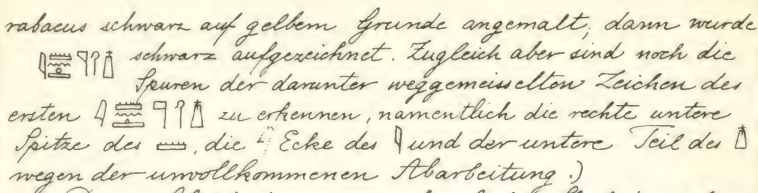 rabaeus schwarz auf gelbem Grunde angemalt, dann wurde
𓇋𓏠𓈖𓊹𓋾𓉺 schwarz aufgezeichnet. Zugleich aber sind noch die
Spuren der darunter weggemeisselten Zeichen des
ersten 𓇋𓏠𓈖𓊹𓋾𓉺 zu erkennen, namentlich die rechte untere
Spitze des 𓏠, die Ecke des 𓇋 und der untere Teil des 𓉺
wegen der unvollkommenen Abarbeitung.)